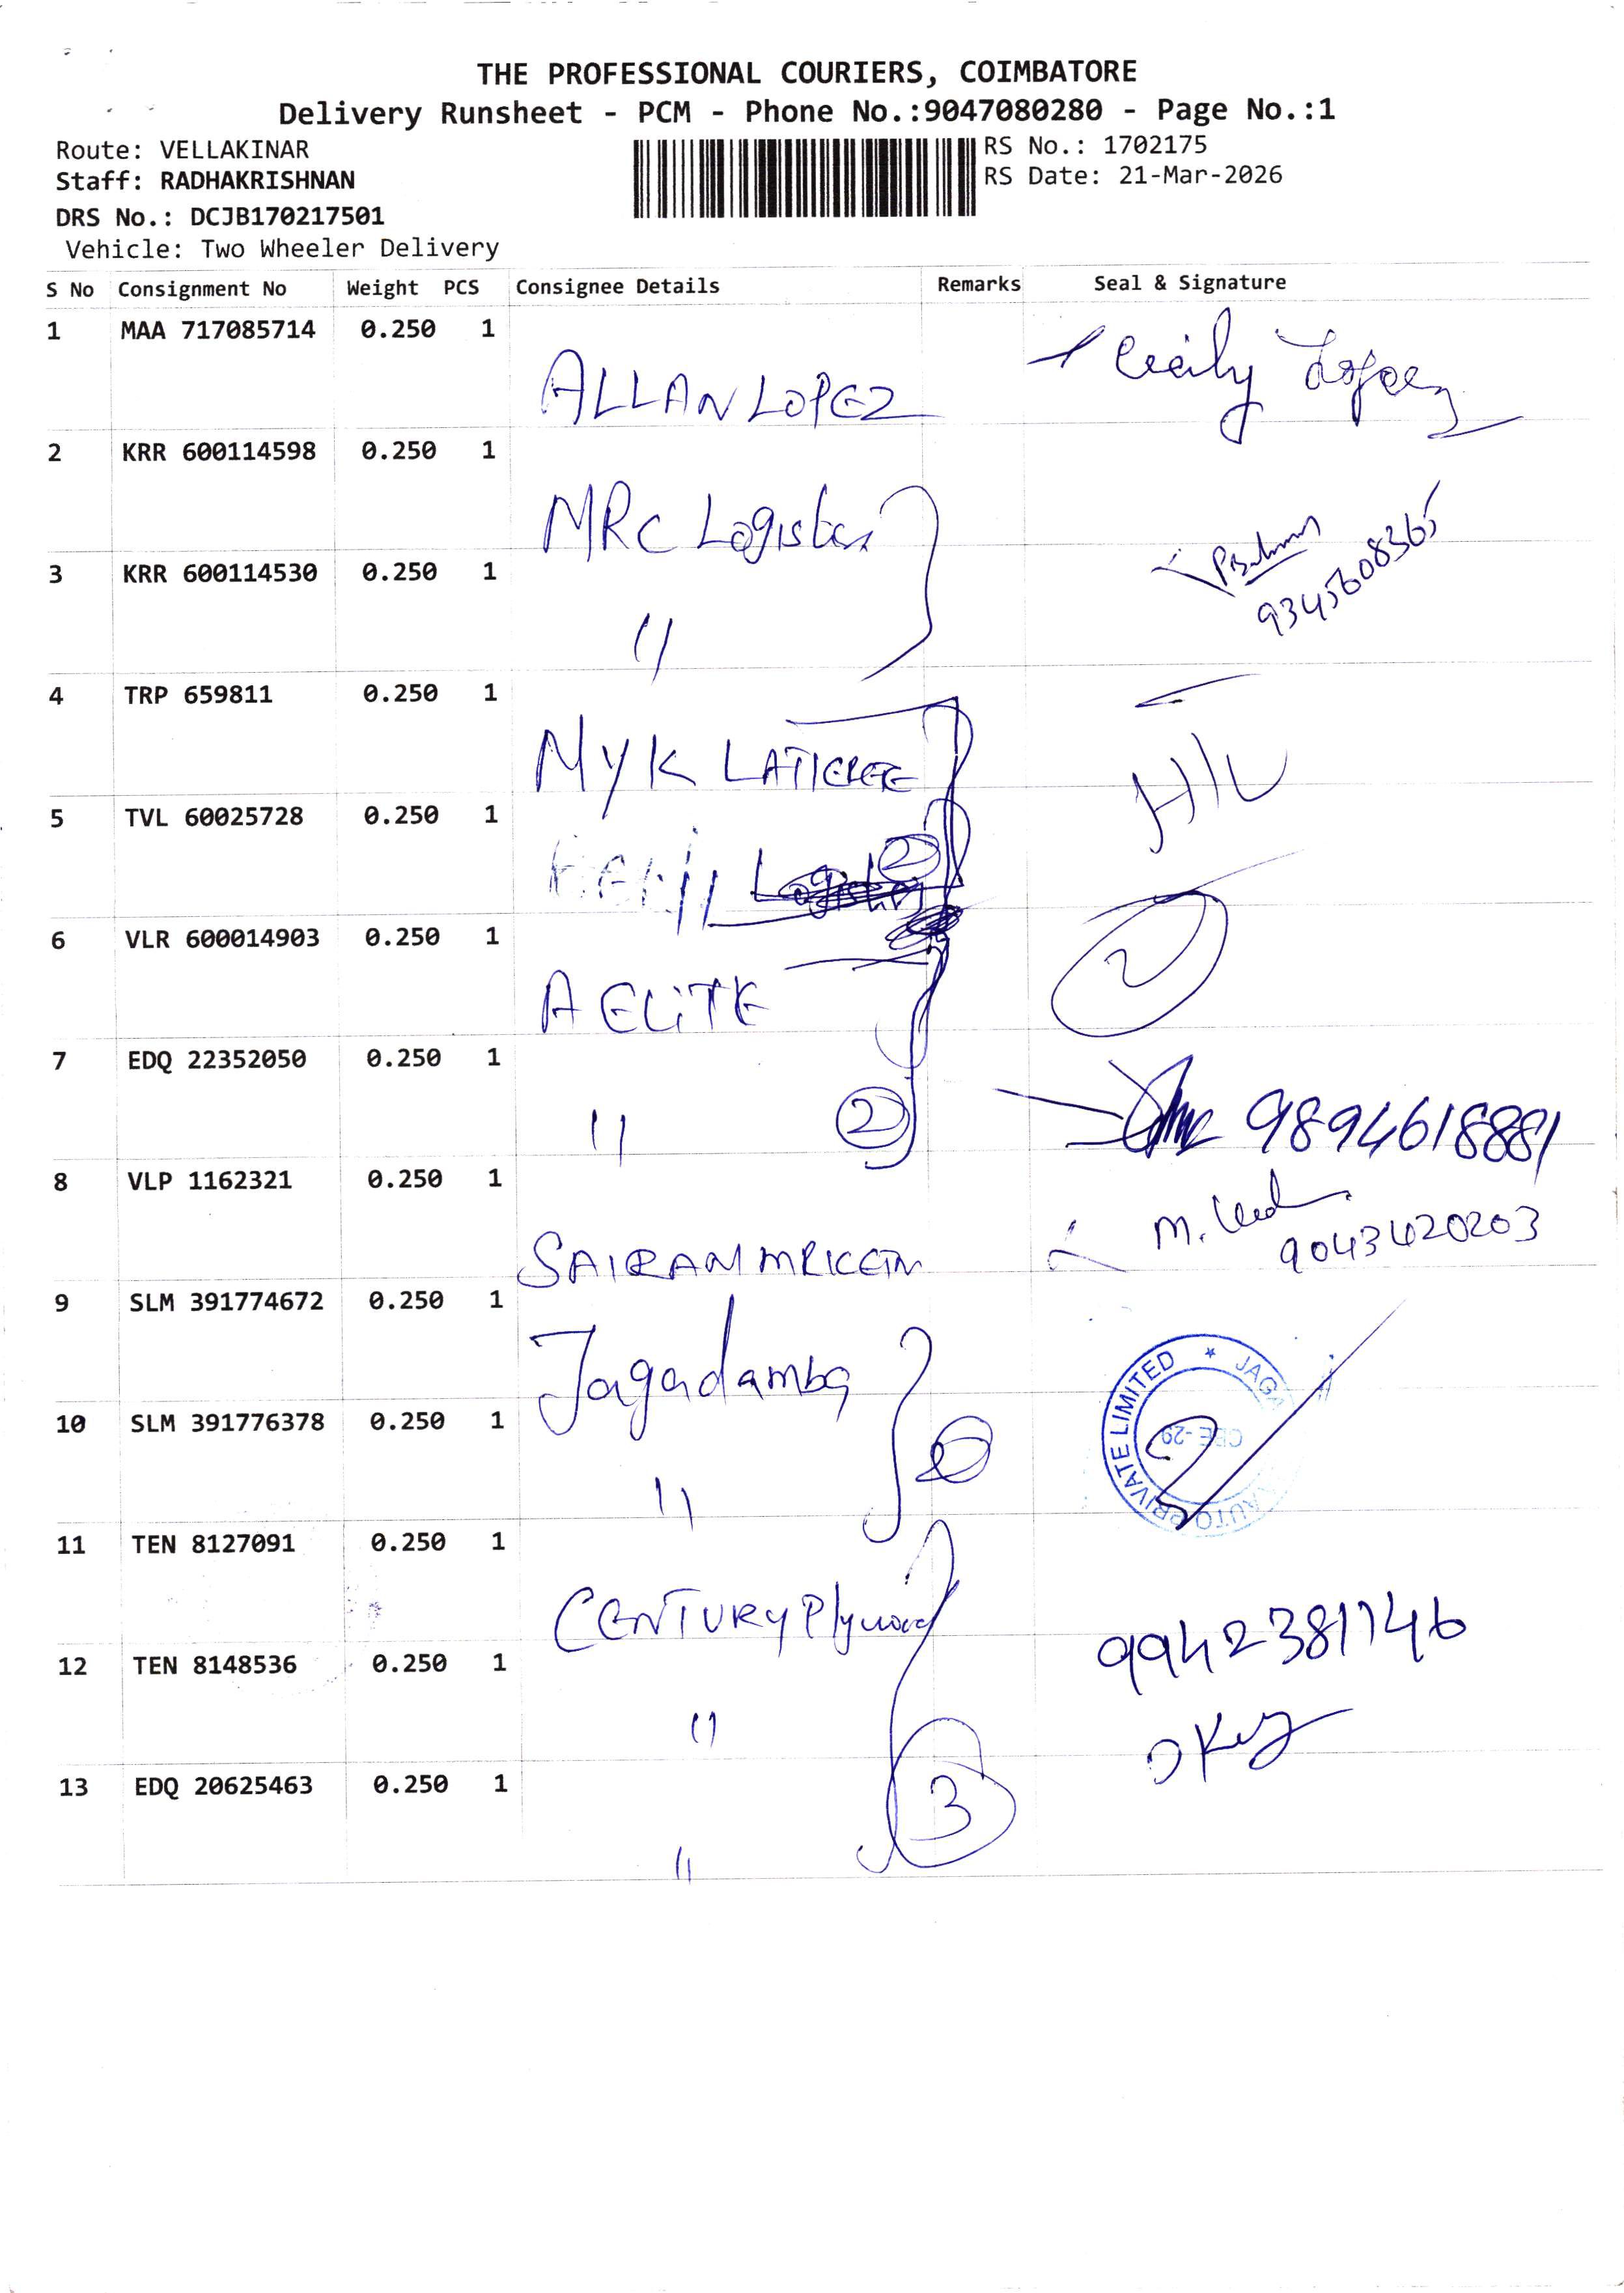 THE PROFESSIONAL COURIERS, COIMBATORE
Delivery Runsheet - PCM - Phone No.:9047080280 - Page No.:1
Route: VELLAKINAR
Staff: RADHAKRISHNAN
DRS No.: DCJB170217501
Vehicle: Two Wheeler Delivery
RS No.: 1702175
RS Date: 21-Mar-2026
S No Consignment No Weight PCS Consignee Details Remarks Seal & Signature
1 MAA 717085714 0.250 1 ALLAN LOPEZ Cecily Lopez
2 KRR 600114598 0.250 1 MRC Logistics
3 KRR 600114530 0.250 1 " 9345608365
4 TRP 659811 0.250 1 MYK
5 TVL 60025728 0.250 1 2
6 VLR 600014903 0.250 1 A ELITE 2
7 EDQ 22352050 0.250 1 " 2 9894618881
8 VLP 1162321 0.250 1 SAIRAM 9043420203
9 SLM 391774672 0.250 1 Jagadamba
PRIVATE LIMITED * JAGA
CBE-29
AUTO
10 SLM 391776378 0.250 1 " 2
11 TEN 8127091 0.250 1 CENTURY Plywood
12 TEN 8148536 0.250 1 " 9942381746
13 EDQ 20625463 0.250 1 " 3